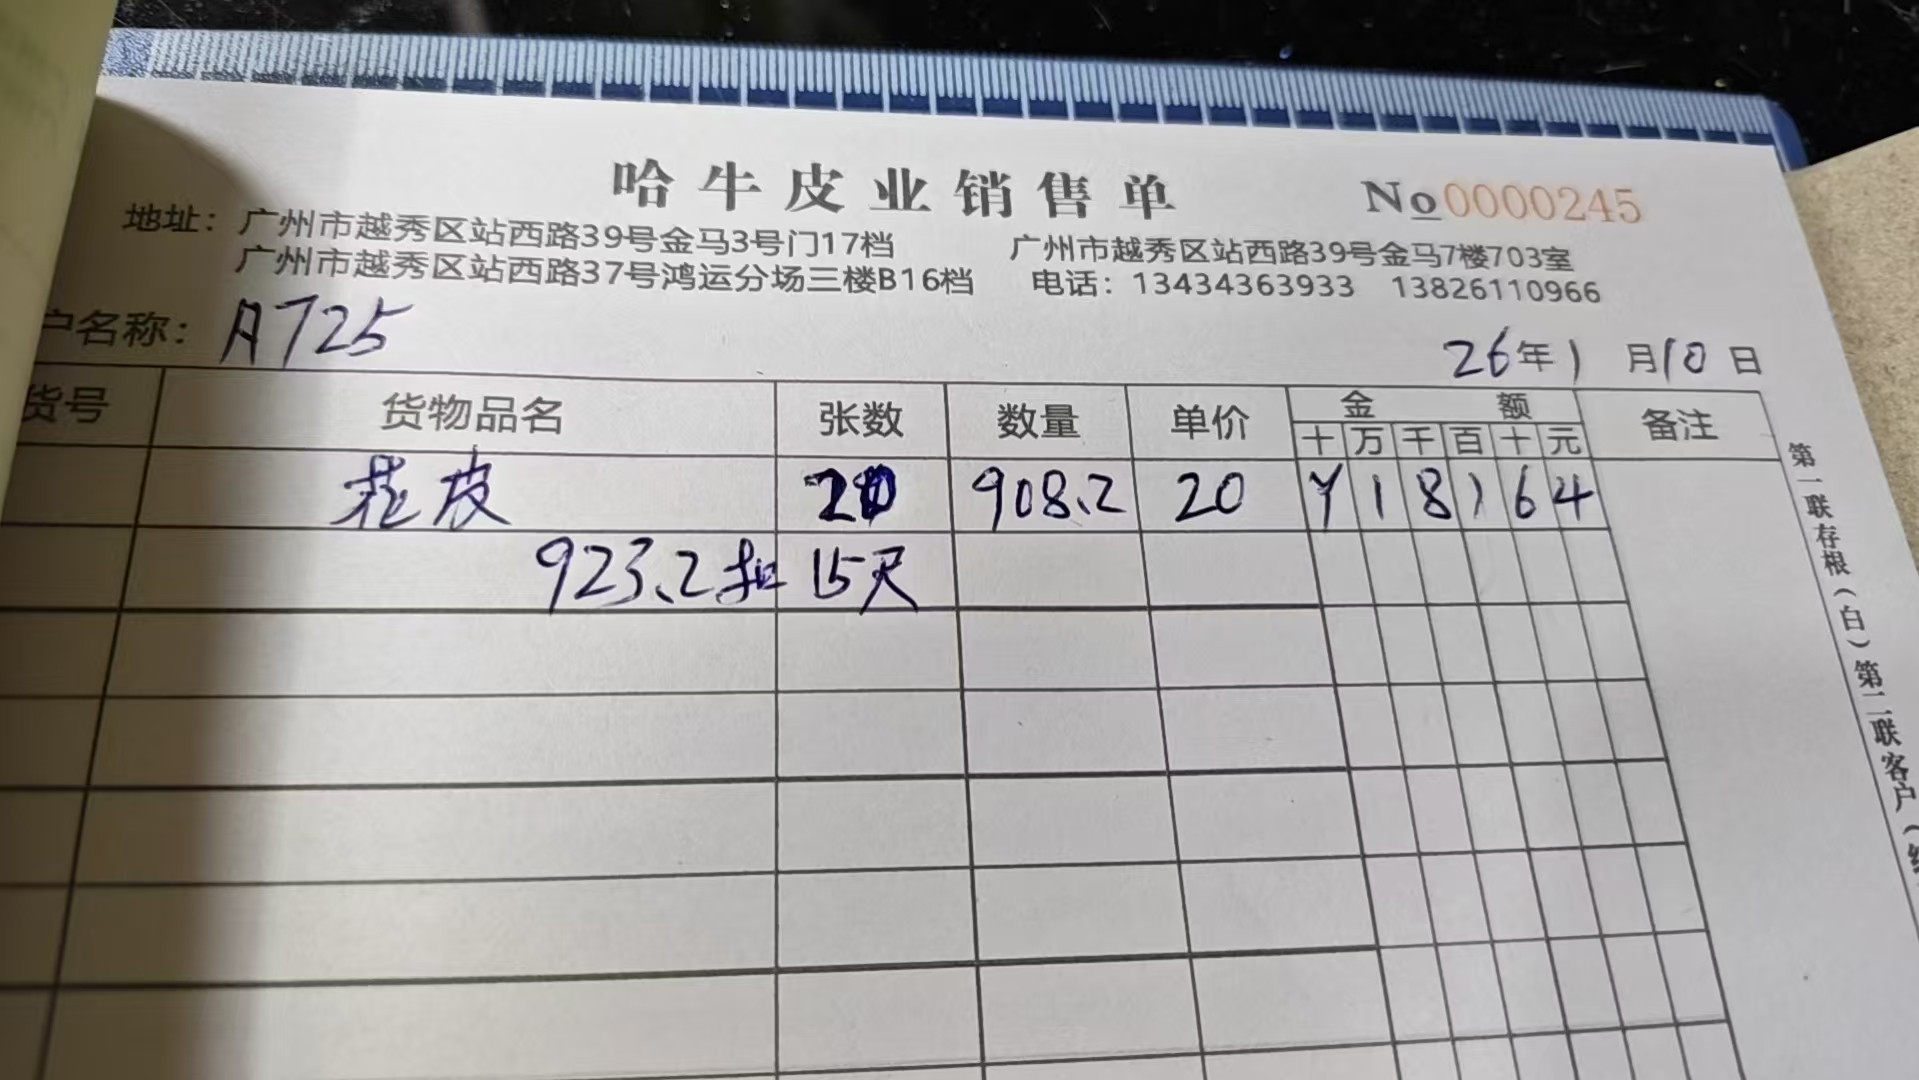 哈牛皮业销售单 No 0000245
地址：广州市越秀区站西路39号金马3号门17档 广州市越秀区站西路39号金马7楼703室
广州市越秀区站西路37号鸿运分场三楼B16档 电话：13434363933 13826110966
户名称：A725
26年1月10日
货号 货物品名 张数 数量 单价 金额 备注
十万千百十元
花皮 908.2 20 ¥18164
923.2扣15尺
第一联存根（白）第二联客户（